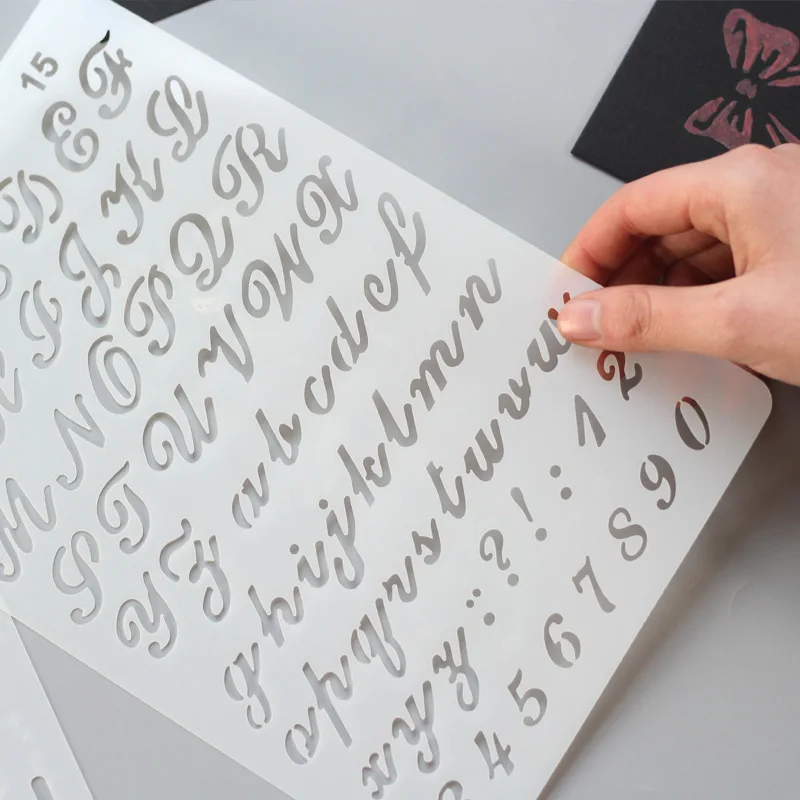 15
D E F
I J K L
M N O P Q R
S T U V W X
Y Z
a b c d e f
g h i j k l m n
o p q r s t u v w
x y z ? ! : 1 2
3 4 5 6 7 8 9 0